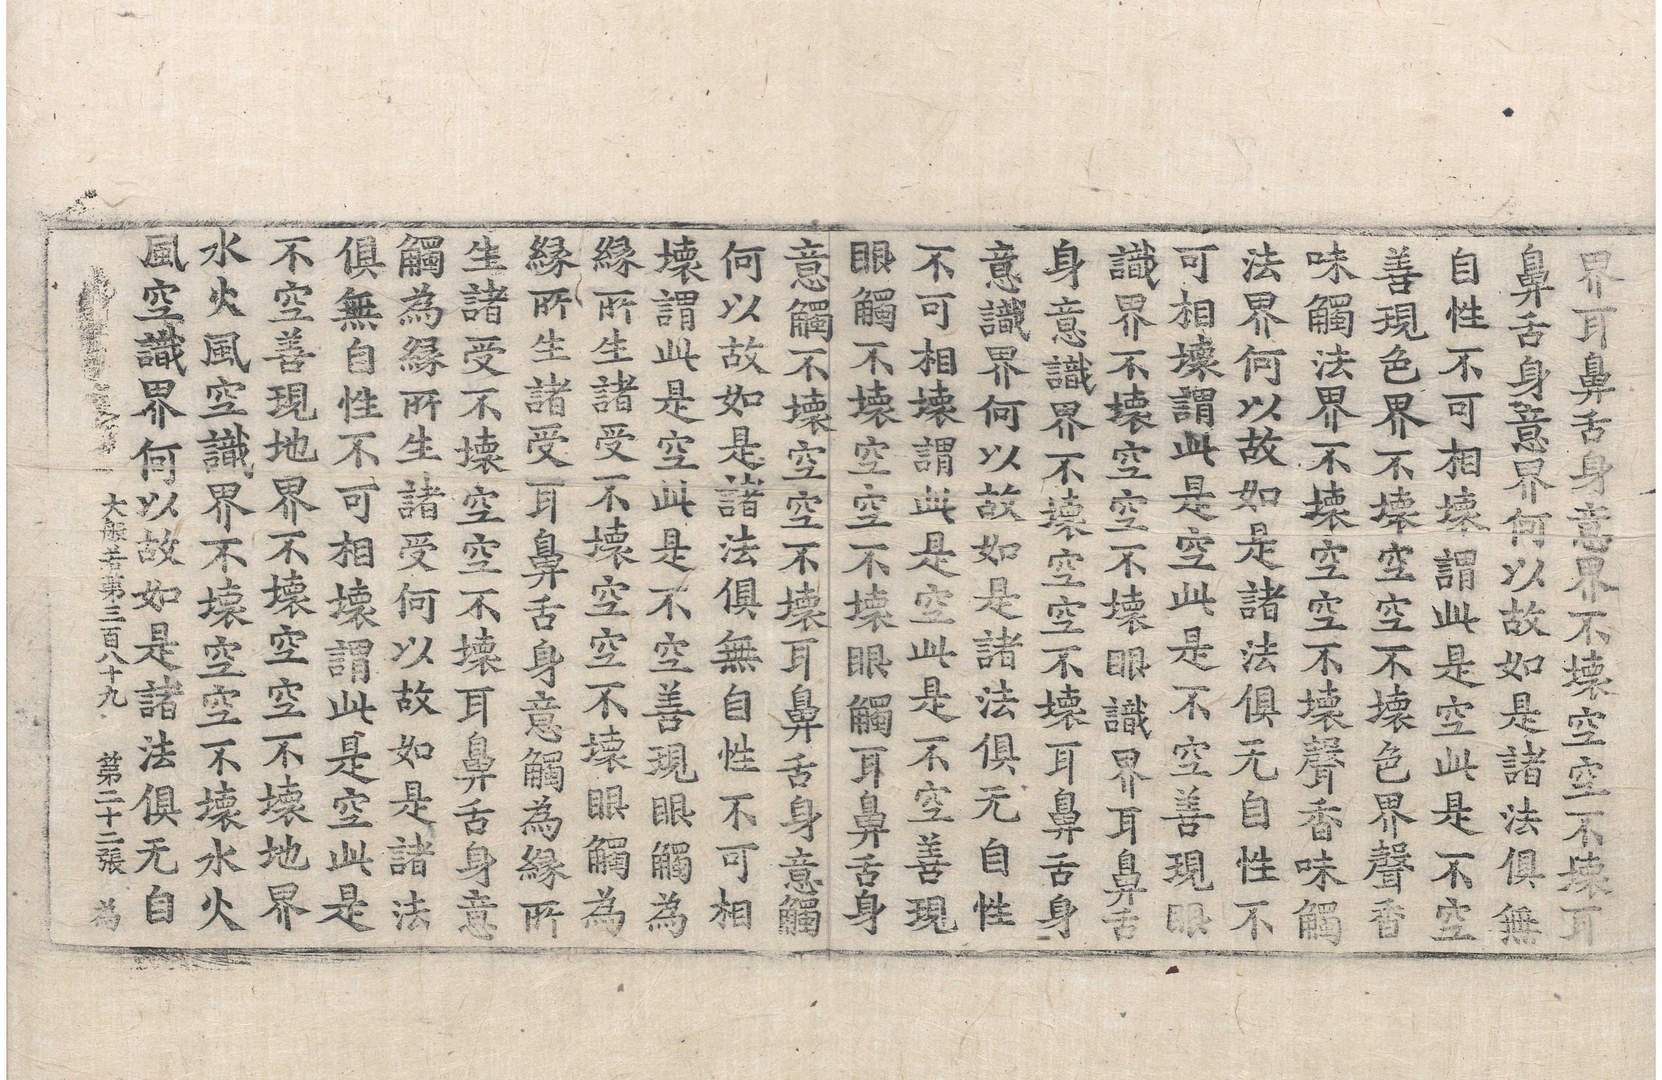 界耳鼻舌身意界不壞空空不壞耳
鼻舌身意界何以故如是諸法俱無
自性不可相壞謂此是空此是不空
善現色界不壞空空不壞色界聲香
味觸法界不壞空空不壞聲香味觸
法界何以故如是諸法俱无自性不
可相壞謂此是空此是不空善現眼
識界不壞空空不壞眼識界耳鼻舌
身意識界不壞空空不壞耳鼻舌身
意識界何以故如是諸法俱无自性
不可相壞謂此是空此是不空善現
眼觸不壞空空不壞眼觸耳鼻舌身
意觸不壞空空不壞耳鼻舌身意觸
何以故如是諸法俱無自性不可相
壞謂此是空此是不空善現眼觸為
緣所生諸受不壞空空不壞眼觸為
緣所生諸受耳鼻舌身意觸為緣所
生諸受不壞空空不壞耳鼻舌身意
觸為緣所生諸受何以故如是諸法
俱無自性不可相壞謂此是空此是
不空善現地界不壞空空不壞地界
水火風空識界不壞空空不壞水火
風空識界何以故如是諸法俱无自
大般若第三百八十九 第二十二張 為